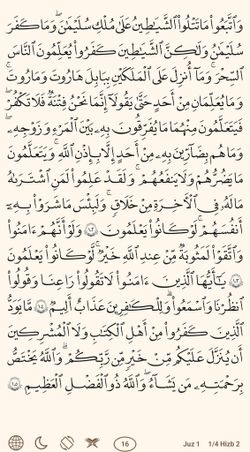 وَٱتَّبَعُوا۟ مَا تَتْلُوا۟ ٱلشَّيَـٰطِينُ عَلَىٰ مُلْكِ سُلَيْمَـٰنَ ۖ وَمَا كَفَرَ
سُلَيْمَـٰنُ وَلَـٰكِنَّ ٱلشَّيَـٰطِينَ كَفَرُوا۟ يُعَلِّمُونَ ٱلنَّاسَ
ٱلسِّحْرَ وَمَآ أُنزِلَ عَلَى ٱلْمَلَكَيْنِ بِبَابِلَ هَـٰرُوتَ وَمَـٰرُوتَ ۚ
وَمَا يُعَلِّمَانِ مِنْ أَحَدٍ حَتَّىٰ يَقُولَآ إِنَّمَا نَحْنُ فِتْنَةٌ فَلَا تَكْفُرْ ۖ
فَيَتَعَلَّمُونَ مِنْهُمَا مَا يُفَرِّقُونَ بِهِۦ بَيْنَ ٱلْمَرْءِ وَزَوْجِهِۦ ۚ
وَمَا هُم بِضَآرِّينَ بِهِۦ مِنْ أَحَدٍ إِلَّا بِإِذْنِ ٱللَّهِ ۚ وَيَتَعَلَّمُونَ
مَا يَضُرُّهُمْ وَلَا يَنفَعُهُمْ ۚ وَلَقَدْ عَلِمُوا۟ لَمَنِ ٱشْتَرَىٰهُ
مَا لَهُۥ فِى ٱلْـَٔاخِرَةِ مِنْ خَلَـٰقٍ ۚ وَلَبِئْسَ مَا شَرَوْا۟ بِهِۦٓ
أَنفُسَهُمْ ۚ لَوْ كَانُوا۟ يَعْلَمُونَ ١٠٢ وَلَوْ أَنَّهُمْ ءَامَنُوا۟
وَٱتَّقَوْا۟ لَمَثُوبَةٌ مِّنْ عِندِ ٱللَّهِ خَيْرٌ ۖ لَّوْ كَانُوا۟ يَعْلَمُونَ
١٠٣ يَـٰٓأَيُّهَا ٱلَّذِينَ ءَامَنُوا۟ لَا تَقُولُوا۟ رَٰعِنَا وَقُولُوا۟
ٱنظُرْنَا وَٱسْمَعُوا۟ ۗ وَلِلْكَـٰفِرِينَ عَذَابٌ أَلِيمٌ ١٠٤ مَّا يَوَدُّ
ٱلَّذِينَ كَفَرُوا۟ مِنْ أَهْلِ ٱلْكِتَـٰبِ وَلَا ٱلْمُشْرِكِينَ
أَن يُنَزَّلَ عَلَيْكُم مِّنْ خَيْرٍ مِّن رَّبِّكُمْ ۗ وَٱللَّهُ يَخْتَصُّ
بِرَحْمَتِهِۦ مَن يَشَآءُ ۚ وَٱللَّهُ ذُو ٱلْفَضْلِ ٱلْعَظِيمِ ١٠٥
16 Juz 1 1/4 Hizb 2